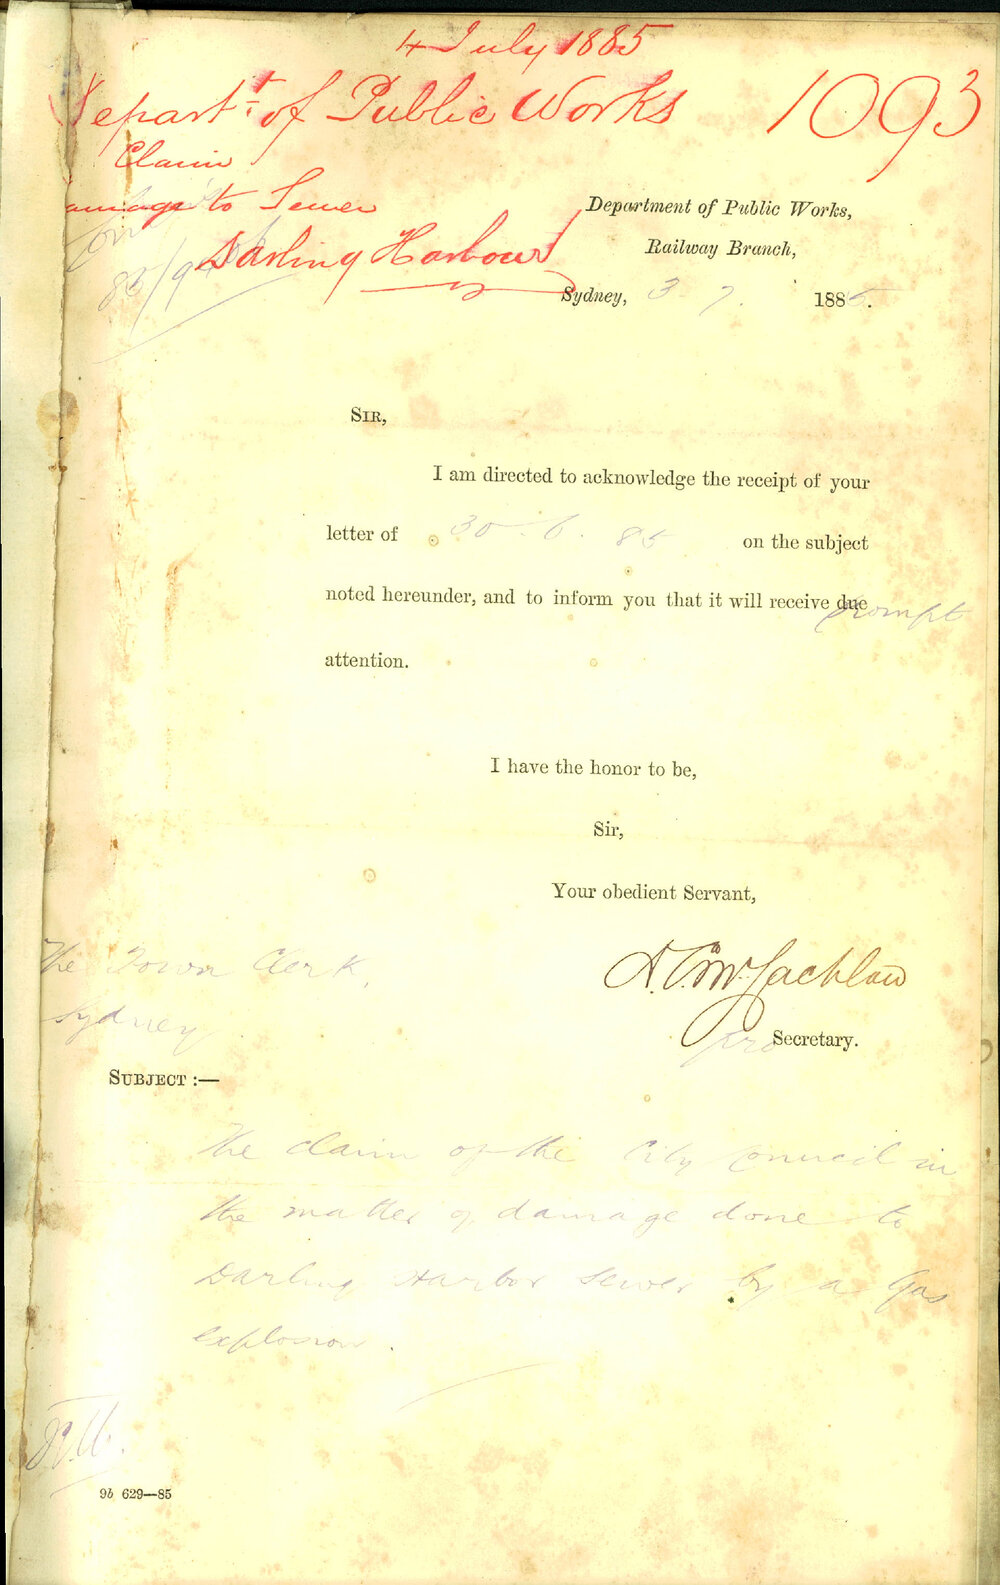 4 July 1885
Depart.t of Public Works 1093
Claim
amage to Sewer
Darling Harbour
Department of Public Works,
Railway Branch,
Sydney, 3 7. 1885.
SIR,
I am directed to acknowledge the receipt of your
letter of 30.6.85 on the subject
noted hereunder, and to inform you that it will receive due prompt
attention.
I have the honor to be,
Sir,
Your obedient Servant,
McLachlan
pro Secretary.
The Town Clerk,
Sydney
SUBJECT :—
The claim of the City Council in
the matter of damage done to
Darling Harbor Sewer by a Gas
explosion.
9b 629—85